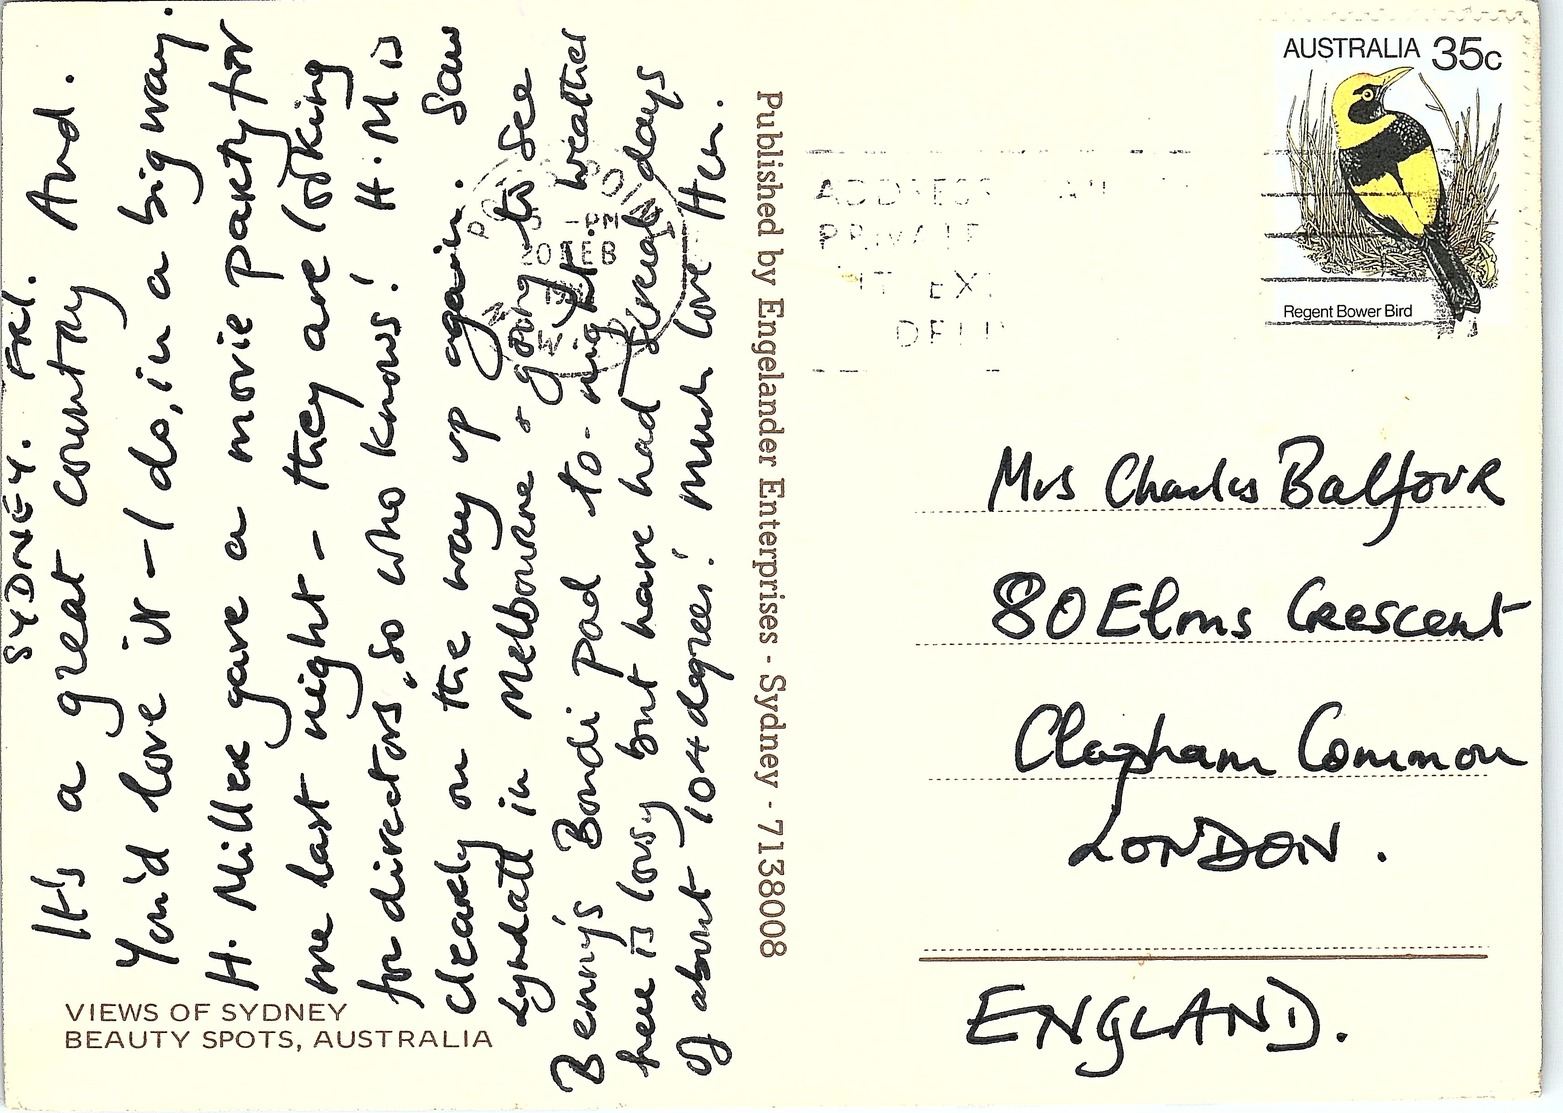 SYDNEY. FRI.
It's a great country And.
You'd love it - I do, in a big way.
H. Miller gave a movie party for
me last night - they are looking
for directors, so who knows! H.M is
clearly on the way up again. Saw
Lyndall in Melbourne & going to see
Benny's Bondi pad to-night. weather
here is lousy but have had several days
of about 104 degrees! Much love Hen.
VIEWS OF SYDNEY
BEAUTY SPOTS, AUSTRALIA
Published by Engelander Enterprises - Sydney - 7138008
AUSTRALIA 35c
Regent Bower Bird
POINT
-PM
20 FEB
ADDRESS
PRIVATE
Mrs Charles Balfour
80 Elms Crescent
Clapham Common
LONDON.
ENGLAND.